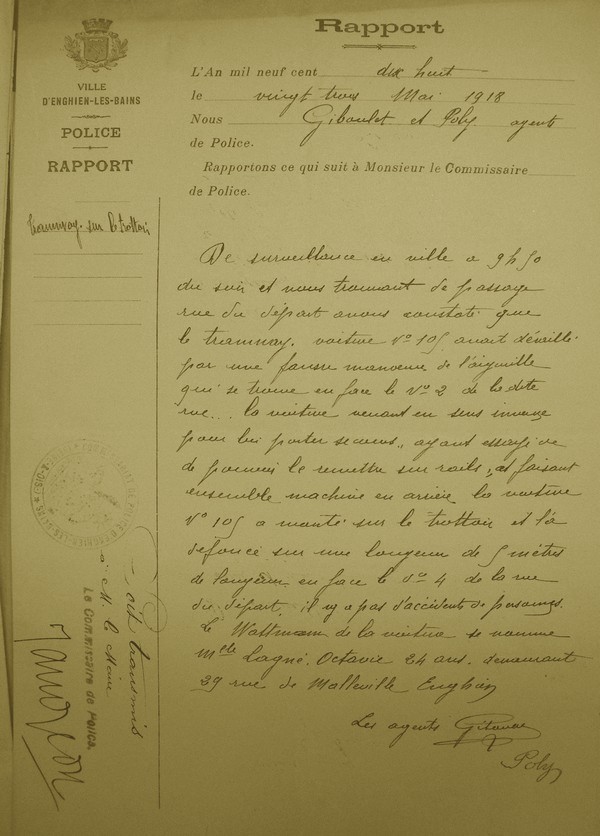 VILLE
D'ENGHIEN-LES-BAINS
POLICE
RAPPORT
tramway sur le trottoir
Rapport
L'An mil neuf cent dix huit
le vingt trois Mai 1918
Nous Giboulet et Poly agents
de Police.
Rapportons ce qui suit à Monsieur le Commissaire
de Police.
De surveillance en ville a 9h50
du soir et nous trouvant de passage
rue du départ avons constaté que
le tramway. voiture No 105 avait déraillé
par une fausse manoeuvre de l'aiguille
qui se trouve en face le No 2 de la dite
rue. la voiture venant en sens inverse
pour lui porter secours, ayant essayé
de pouvoir le remettre sur rails, et faisant
ensemble machine en arrière la voiture
No 105 a monté sur le trottoir et l'a
défoncé sur une longueur de 5 mètres
de longueur en face le No 4 de la rue
du départ. il n'y a pas d'accidents de personnes.
Le Wattmann de la voiture se nomme
Melle Lagné Octavie 24 ans. demeurant
39 rue de Malleville Enghien
Les agents Giboulet
Poly
Soit transmis
à M. le Maire
Le Commissaire de Police,